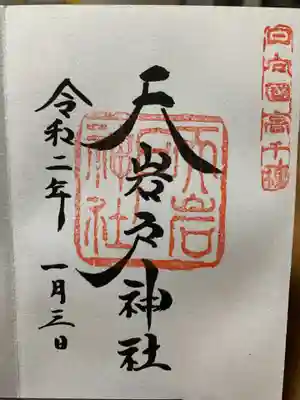 日向國高千穂
天岩戸神社
天岩戸神社
令和二年
一月三日